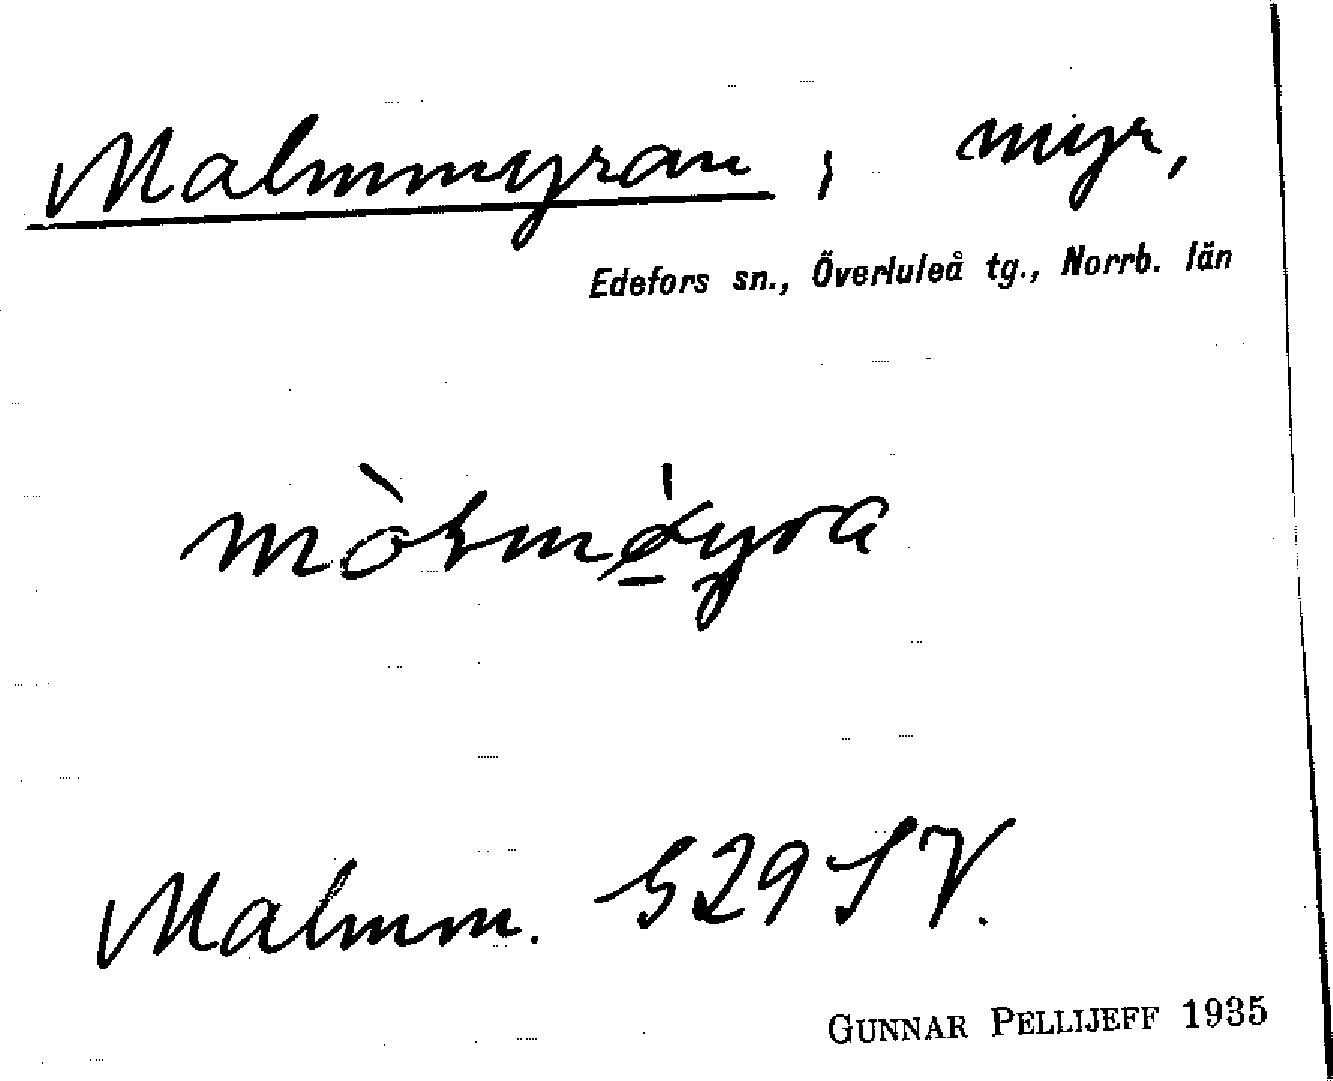 Malmmyran, myr,
Edefors sn., Överluleå tg., Norrb. län
Malmm. S29SV.
GUNNAR PELLIJEFF 1935